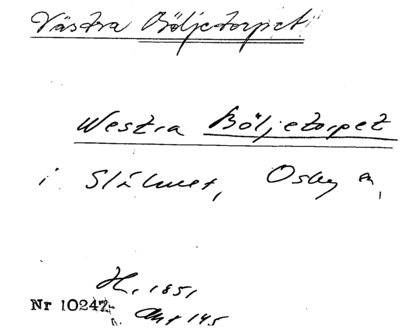 Västra Böljetorpet
Westra Böljetorpet
i Slähult, Osby sn,
H. 1851
Nr 10247 Akt 145